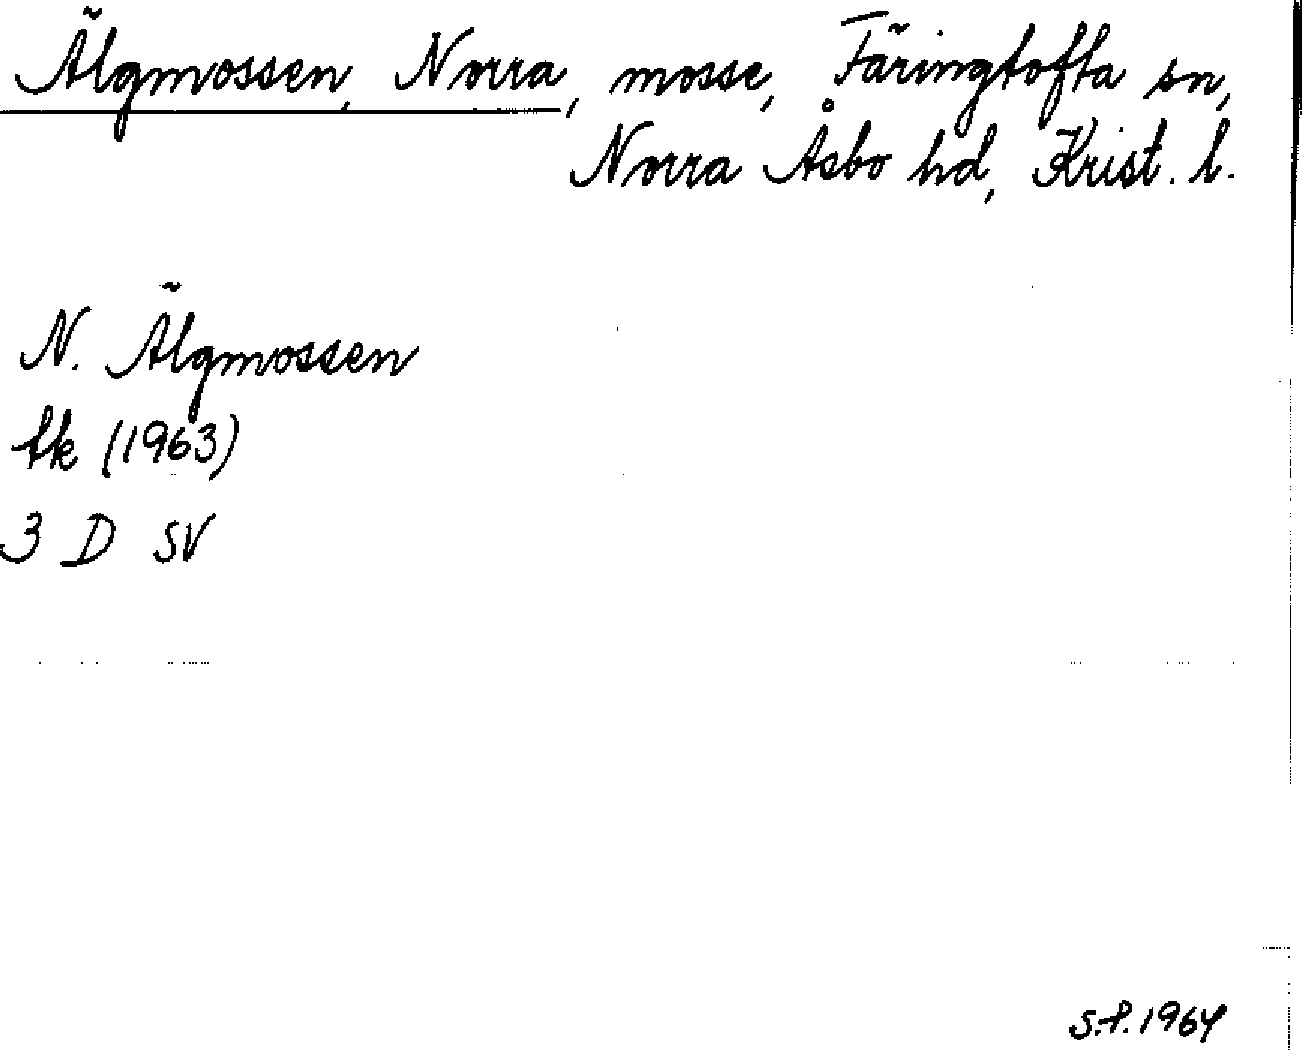 Älgmossen, Norra, mosse, Färingtofta sn,
Norra Åsbo hd, Krist. l.
N. Älgmossen
tk (1963)
3 D SV
S.P. 1964